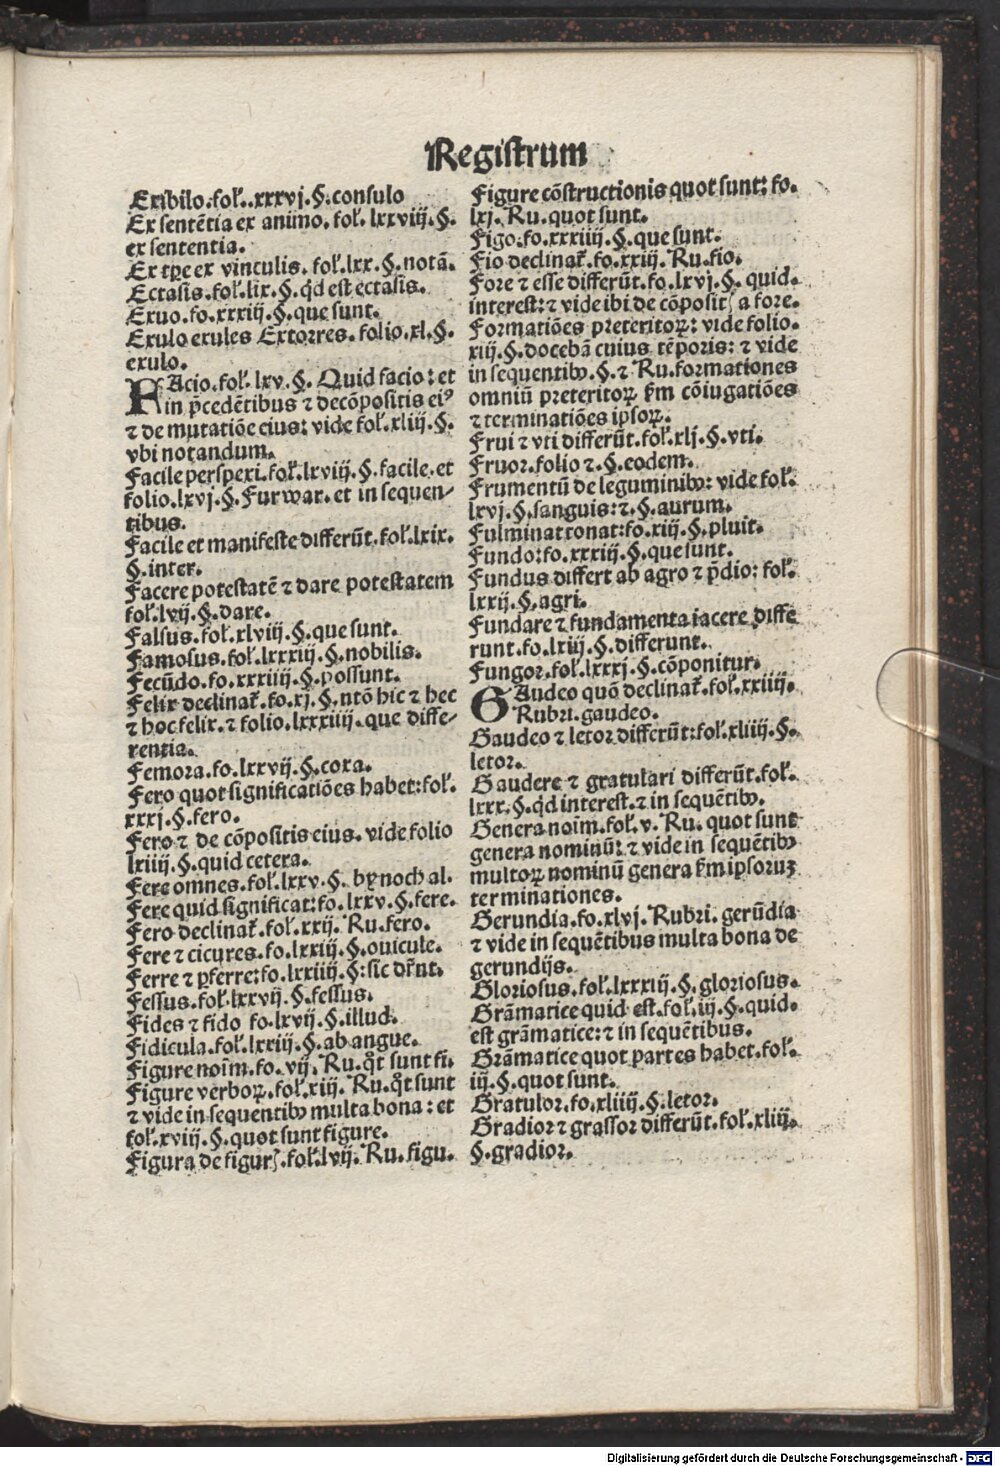 Registrum
Exibilo.fol..xxxvj.§.consulo
Ex sentẽtia ex animo.fol.lxxviij.§.
ex sententia.
Ex tp̄e ex vinculis.fol.lxx.§.notã.
Ectasis.fol.lix.§.qd est ectasis.
Exuo.fo.xxxiij.§.que sunt.
Exulo exules Extorres.folio.xl.§.
exulo.
FAcio.fol.lxv.§.Quid facio:et
in p̄cedẽtibus ⁊ decõpositis eiꝰ
⁊ de mutatiõe eius:vide fol.xliij.§.
vbi notandum.
Facile perspexi.fol.lxviij.§.facile.et
folio.lxvj.§.Furwar.et in sequen/
tibus.
Facile et manifeste differũt.fol.lxix.
§.inter.
Facere potestatẽ ⁊ dare potestatem
fol.lvij.§.dare.
Falsus.fol.xlviij.§.que sunt.
Famosus.fol.lxxxiij.§.nobilis.
Fecũdo.fo.xxxiiij.§.possunt.
Felix declinat̉.fo.xj.§.ntõ hic ⁊ hec
⁊ hoc felix.⁊ folio.lxxxiiij.que diffe/
rentia.
Femora.fo.lxxvij.§.coxa.
Fero quot significatiões habet:fol.
xxxj.§.fero.
Fero ⁊ de cõpositis eius.vide folio
lxiiij.§.quid cetera.
Fere omnes.fol.lxxv.§.bynoch al.
Fere quid significat:fo.lxxv.§.fere.
Fero declinat̉.fol.xxij.Ru.fero.
Fere ⁊ cicures.fo.lxxiij.§.ouicule.
Ferre ⁊ ꝑferre:fo.lxxiiij.§:sic dr̃nt.
Fessus.fol.lxxvij.§.fessus.
Fides ⁊ fido fo.lxvij.§.illud.
Fidicula.fol.lxxiij.§.ab angue.
Figure noĩm.fo.vij.Ru.qͦt sunt fi.
Figure verboꝝ.fol.xiij.Ru.qͦt sunt
⁊ vide in sequentibꝰ multa bona:et
fol.xviij.§.quot sunt figure.
Figura de figur̃.fol.lvij.Ru.figu.
Figure cõstructionis quot sunt:fo.
lxj.Ru.quot sunt.
Figo:fo.xxxiiij.§.que sunt.
Fio declinat̉.fo.xxiij.Ru.fio.
Fore ⁊ esse differũt.fo.lxvj.§.quid.
interest:⁊ vide ibi de cõposit̃ a fore.
Formatiões preteritoꝝ:vide folio.
xiij.§.docebã cuius tẽporis:⁊ vide
in sequentibꝰ.§.⁊ Ru.formationes
omniũ preteritoꝝ fm̃ cõiugatiões
⁊ terminatiões ipsoꝝ.
Frui ⁊ vti differũt.fol.xlj.§.vti.
Fruor.folio ⁊.§.eodem.
Frumentũ de leguminibꝰ:vide fol.
lxvj.§.sanguis:⁊.§.aurum.
Fulminat tonat:fo.xiij.§.pluit.
Fundo:fo.xxxiij.§.que sunt.
Fundus differt ab agro ⁊ p̄dio:fol.
lxxij.§.agri.
Fundare ⁊ fundamenta iacere diffe
runt.fo.lxiij.§.differunt.
Fungor.fol.lxxxj.§.cõponitur.
GAudeo quõ declinat̉.fol.xxiiij.
Rubri.gaudeo.
Gaudeo ⁊ letor differũt:fol.xliiij.§.
letor.
Gaudere ⁊ gratulari differũt.fol.
lxxx.§.qd interest.⁊ in sequẽtibꝰ.
Genera noĩm.fol.v.Ru.quot sunt
genera nominũ:⁊ vide in sequẽtibꝰ
multoꝝ nominũ genera fm̃ ipsoruꝫ
terminationes.
Gerundia.fo.xlvj.Rubri.gerũdia
⁊ vide in sequẽtibus multa bona de
gerundijs.
Gloriosus.fol.lxxxiij.§.gloriosus.
Grãmatice quid est.fol.iij.§.quid.
est grãmatice:⁊ in sequẽtibus.
Grãmatice quot partes habet.fol.
iij.§.quot sunt.
Gratulor.fo.xliiij.§.letor.
Gradior ⁊ grassor differũt.fol.xliij.
§.gradior.
Digitalisierung gefördert durch die Deutsche Forschungsgemeinschaft - DFG